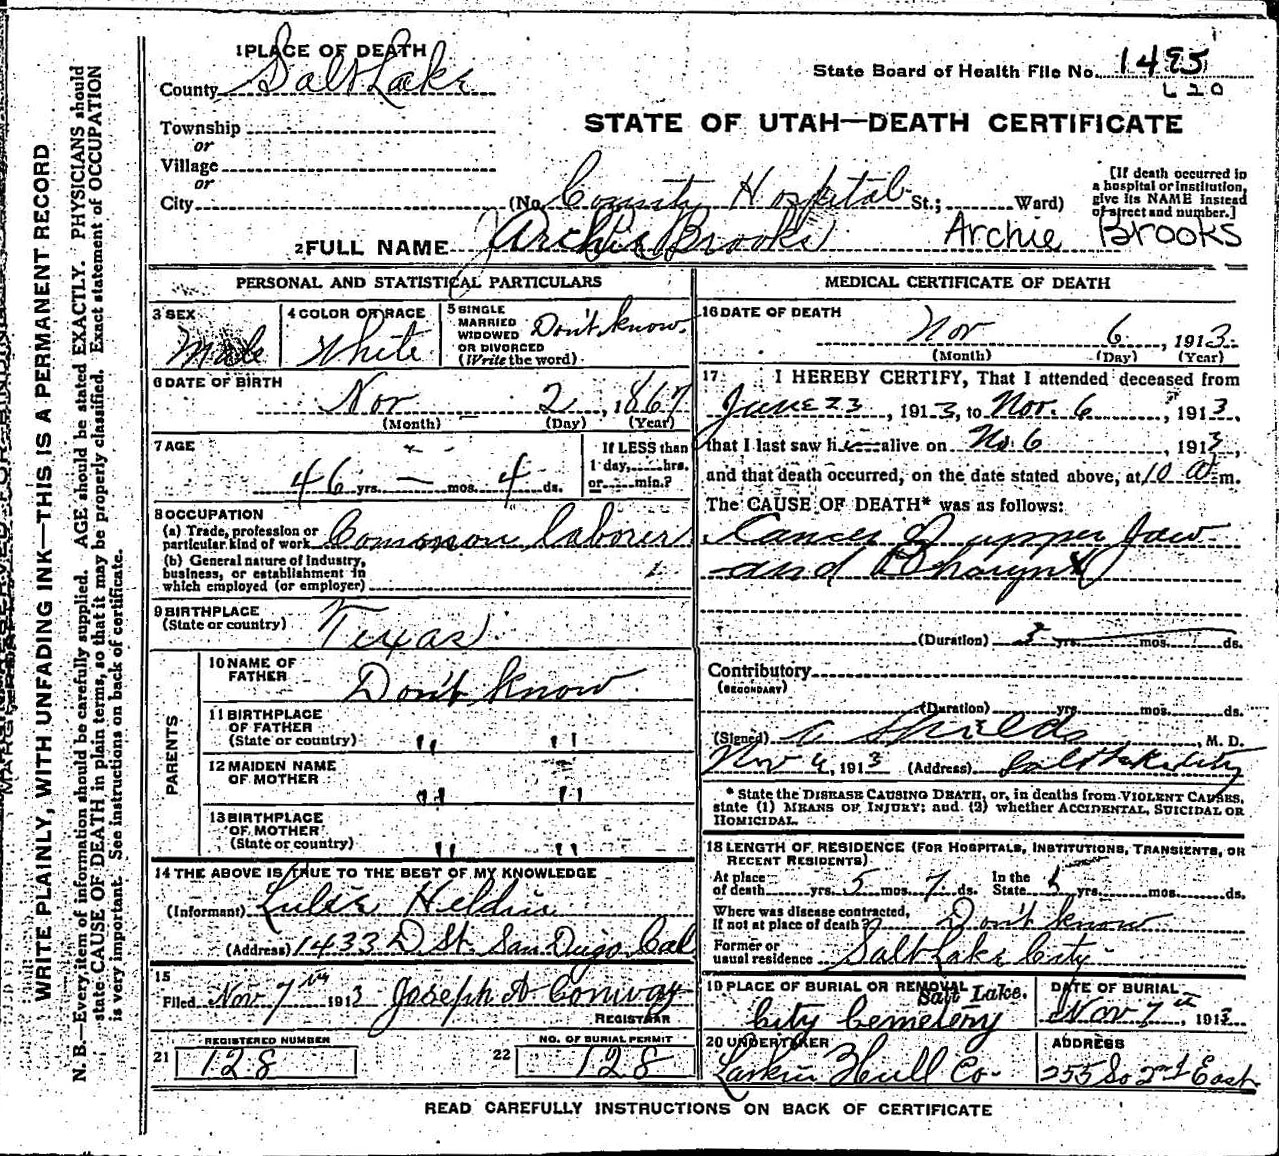 1 PLACE OF DEATH
County Salt Lake
State Board of Health File No. 1495
L 20
Township
or
Village
or
City
STATE OF UTAH—DEATH CERTIFICATE
(No. County Hospital St.; Ward)
[If death occurred in a hospital or institution, give its NAME instead of street and number.]
2 FULL NAME Archie Brooks Archie Brooks
PERSONAL AND STATISTICAL PARTICULARS
3 SEX Male
4 COLOR OR RACE White
5 SINGLE MARRIED WIDOWED OR DIVORCED (Write the word) Don't know.
6 DATE OF BIRTH
Nov 2, 1867
(Month) (Day) (Year)
7 AGE
46 yrs. — mos. 4 ds.
If LESS than 1 day, hrs. or min.?
8 OCCUPATION
(a) Trade, profession or particular kind of work Common laborer
(b) General nature of industry, business, or establishment in which employed (or employer)
9 BIRTHPLACE
(State or country) Texas
PARENTS
10 NAME OF FATHER Don't know
11 BIRTHPLACE OF FATHER (State or country) " "
12 MAIDEN NAME OF MOTHER " "
13 BIRTHPLACE OF MOTHER (State or country) " "
14 THE ABOVE IS TRUE TO THE BEST OF MY KNOWLEDGE
(Informant)
(Address) 1433 D St. San Diego Cal
15
Filed Nov 7th 1913 Joseph A Conway
REGISTRAR
REGISTERED NUMBER
21 128
NO. OF BURIAL PERMIT
22 128
MEDICAL CERTIFICATE OF DEATH
16 DATE OF DEATH
Nov 6, 1913
(Month) (Day) (Year)
17 I HEREBY CERTIFY, That I attended deceased from
June 23, 1913, to Nov. 6, 1913,
that I last saw h alive on No. 6 1913,
and that death occurred, on the date stated above, at 10 a. m.
The CAUSE OF DEATH* was as follows:
Cancer of upper Jaw
and Pharynx
(Duration) 3 yrs. mos. ds.
Contributory
(SECONDARY)
(Duration) yrs. mos. ds.
(Signed) Shields, M. D.
Nov, 1913 (Address) Salt Lake City
* State the DISEASE CAUSING DEATH, or, in deaths from VIOLENT CAUSES, state (1) MEANS OF INJURY; and (2) whether ACCIDENTAL, SUICIDAL OR HOMICIDAL.
18 LENGTH OF RESIDENCE (FOR HOSPITALS, INSTITUTIONS, TRANSIENTS, OR RECENT RESIDENTS)
At place of death yrs. 5 mos. 7 ds. In the State yrs. mos. ds.
Where was disease contracted, if not at place of death? Don't know
Former or usual residence Salt Lake City
19 PLACE OF BURIAL OR REMOVAL
Salt Lake.
City Cemetery
DATE OF BURIAL
Nov 7th, 1913
20 UNDERTAKER
Larkin Hull Co.
ADDRESS
255 So 2nd East
READ CAREFULLY INSTRUCTIONS ON BACK OF CERTIFICATE
WRITE PLAINLY, WITH UNFADING INK—THIS IS A PERMANENT RECORD
N. B.—Every item of information should be carefully supplied. AGE should be stated EXACTLY. PHYSICIANS should
state CAUSE OF DEATH in plain terms, so that it may be properly classified. Exact statement of OCCUPATION
is very important. See instructions on back of certificate.